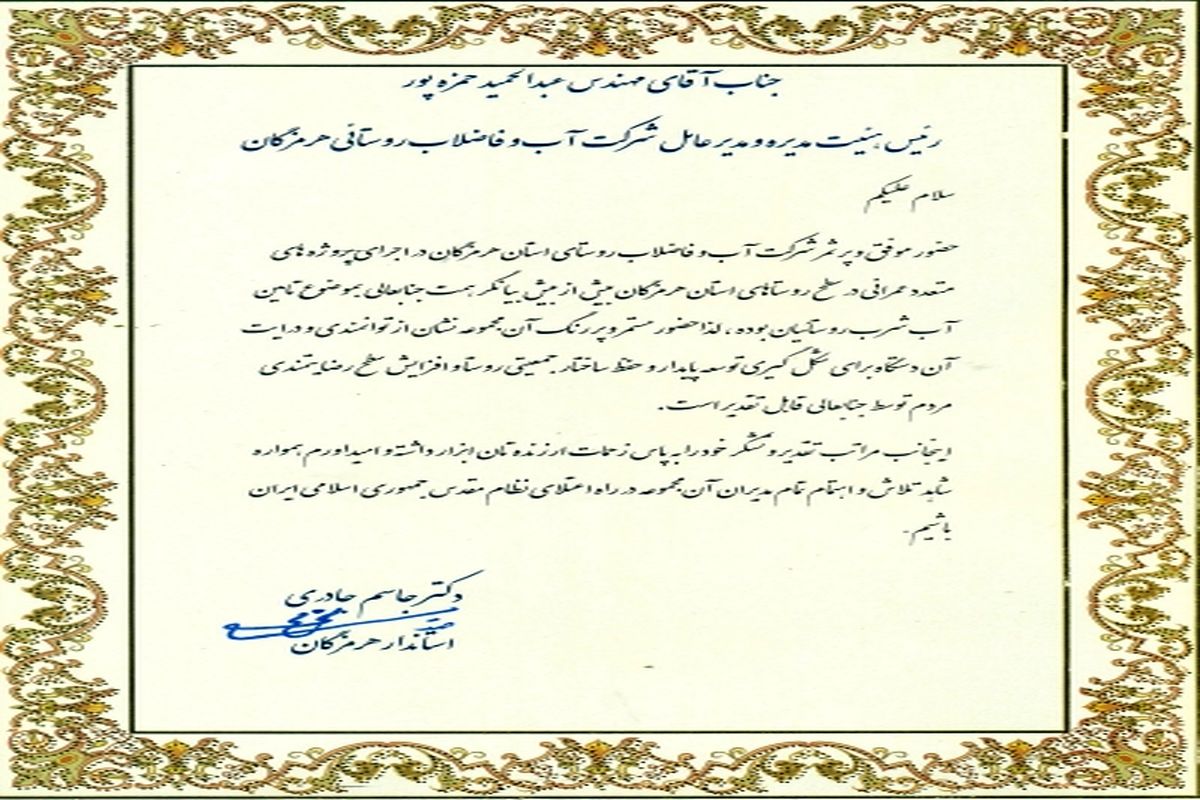 جناب آقای مهندس عبدالحمید حمزه پور
رئیس هیئت مدیره و مدیرعامل شرکت آب و فاضلاب روستائی هرمزگان
سلام علیکم
حضور موفق و پرثمر شرکت آب و فاضلاب روستای استان هرمزگان در اجرای پروژه های
متعدد عمرانی در سطح روستاهای استان هرمزگان بیش از پیش بیانگر همت جنابعالی بموضوع تامین
آب شرب روستائیان بوده ، لذا حضور مستمر و پررنگ آن مجموعه نشان از توانمندی و درایت
آن دستگاه برای شکل گیری توسعه پایدار و حفظ ساختار جمعیتی روستا و افزایش سطح رضایتمندی
مردم توسط جنابعالی قابل تقدیر است.
اینجانب مراتب تقدیر و تشکر خود را به پاس زحمات ارزنده تان ابراز داشته و امیداورم همواره
شاهد تلاش و اهتمام تمام مدیران آن مجموعه در راه اعتلای نظام مقدس جمهوری اسلامی ایران
باشیم.
دکتر جاسم جادری
استاندار هرمزگان